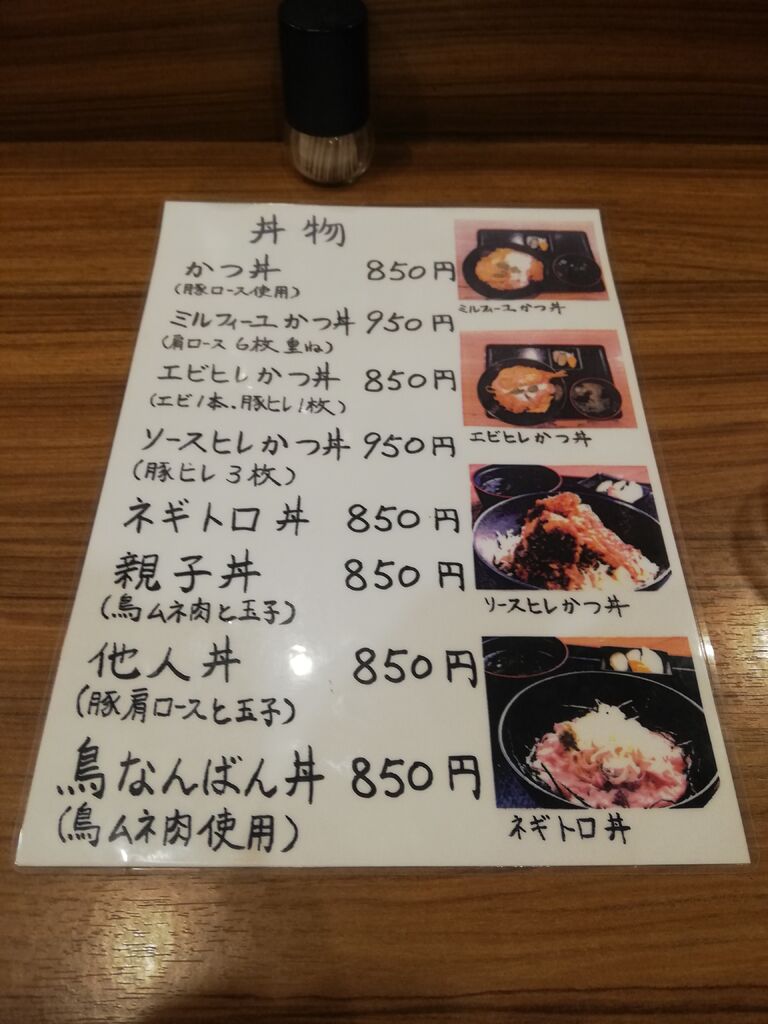 丼物
かつ丼 850円
(豚ロース使用)
ミルフィーユかつ丼 950円
(肩ロース 6枚 重ね)
エビヒレかつ丼 850円
(エビ1本.豚ヒレ1枚)
ソースヒレかつ丼 950円
(豚ヒレ 3枚)
ネギトロ丼 850円
親子丼 850円
(鳥ムネ肉と玉子)
他人丼 850円
(豚肩ロースと玉子)
鳥なんばん丼 850円
(鳥ムネ肉使用)
ミルフィーユかつ丼
エビヒレかつ丼
ソースヒレかつ丼
ネギトロ丼